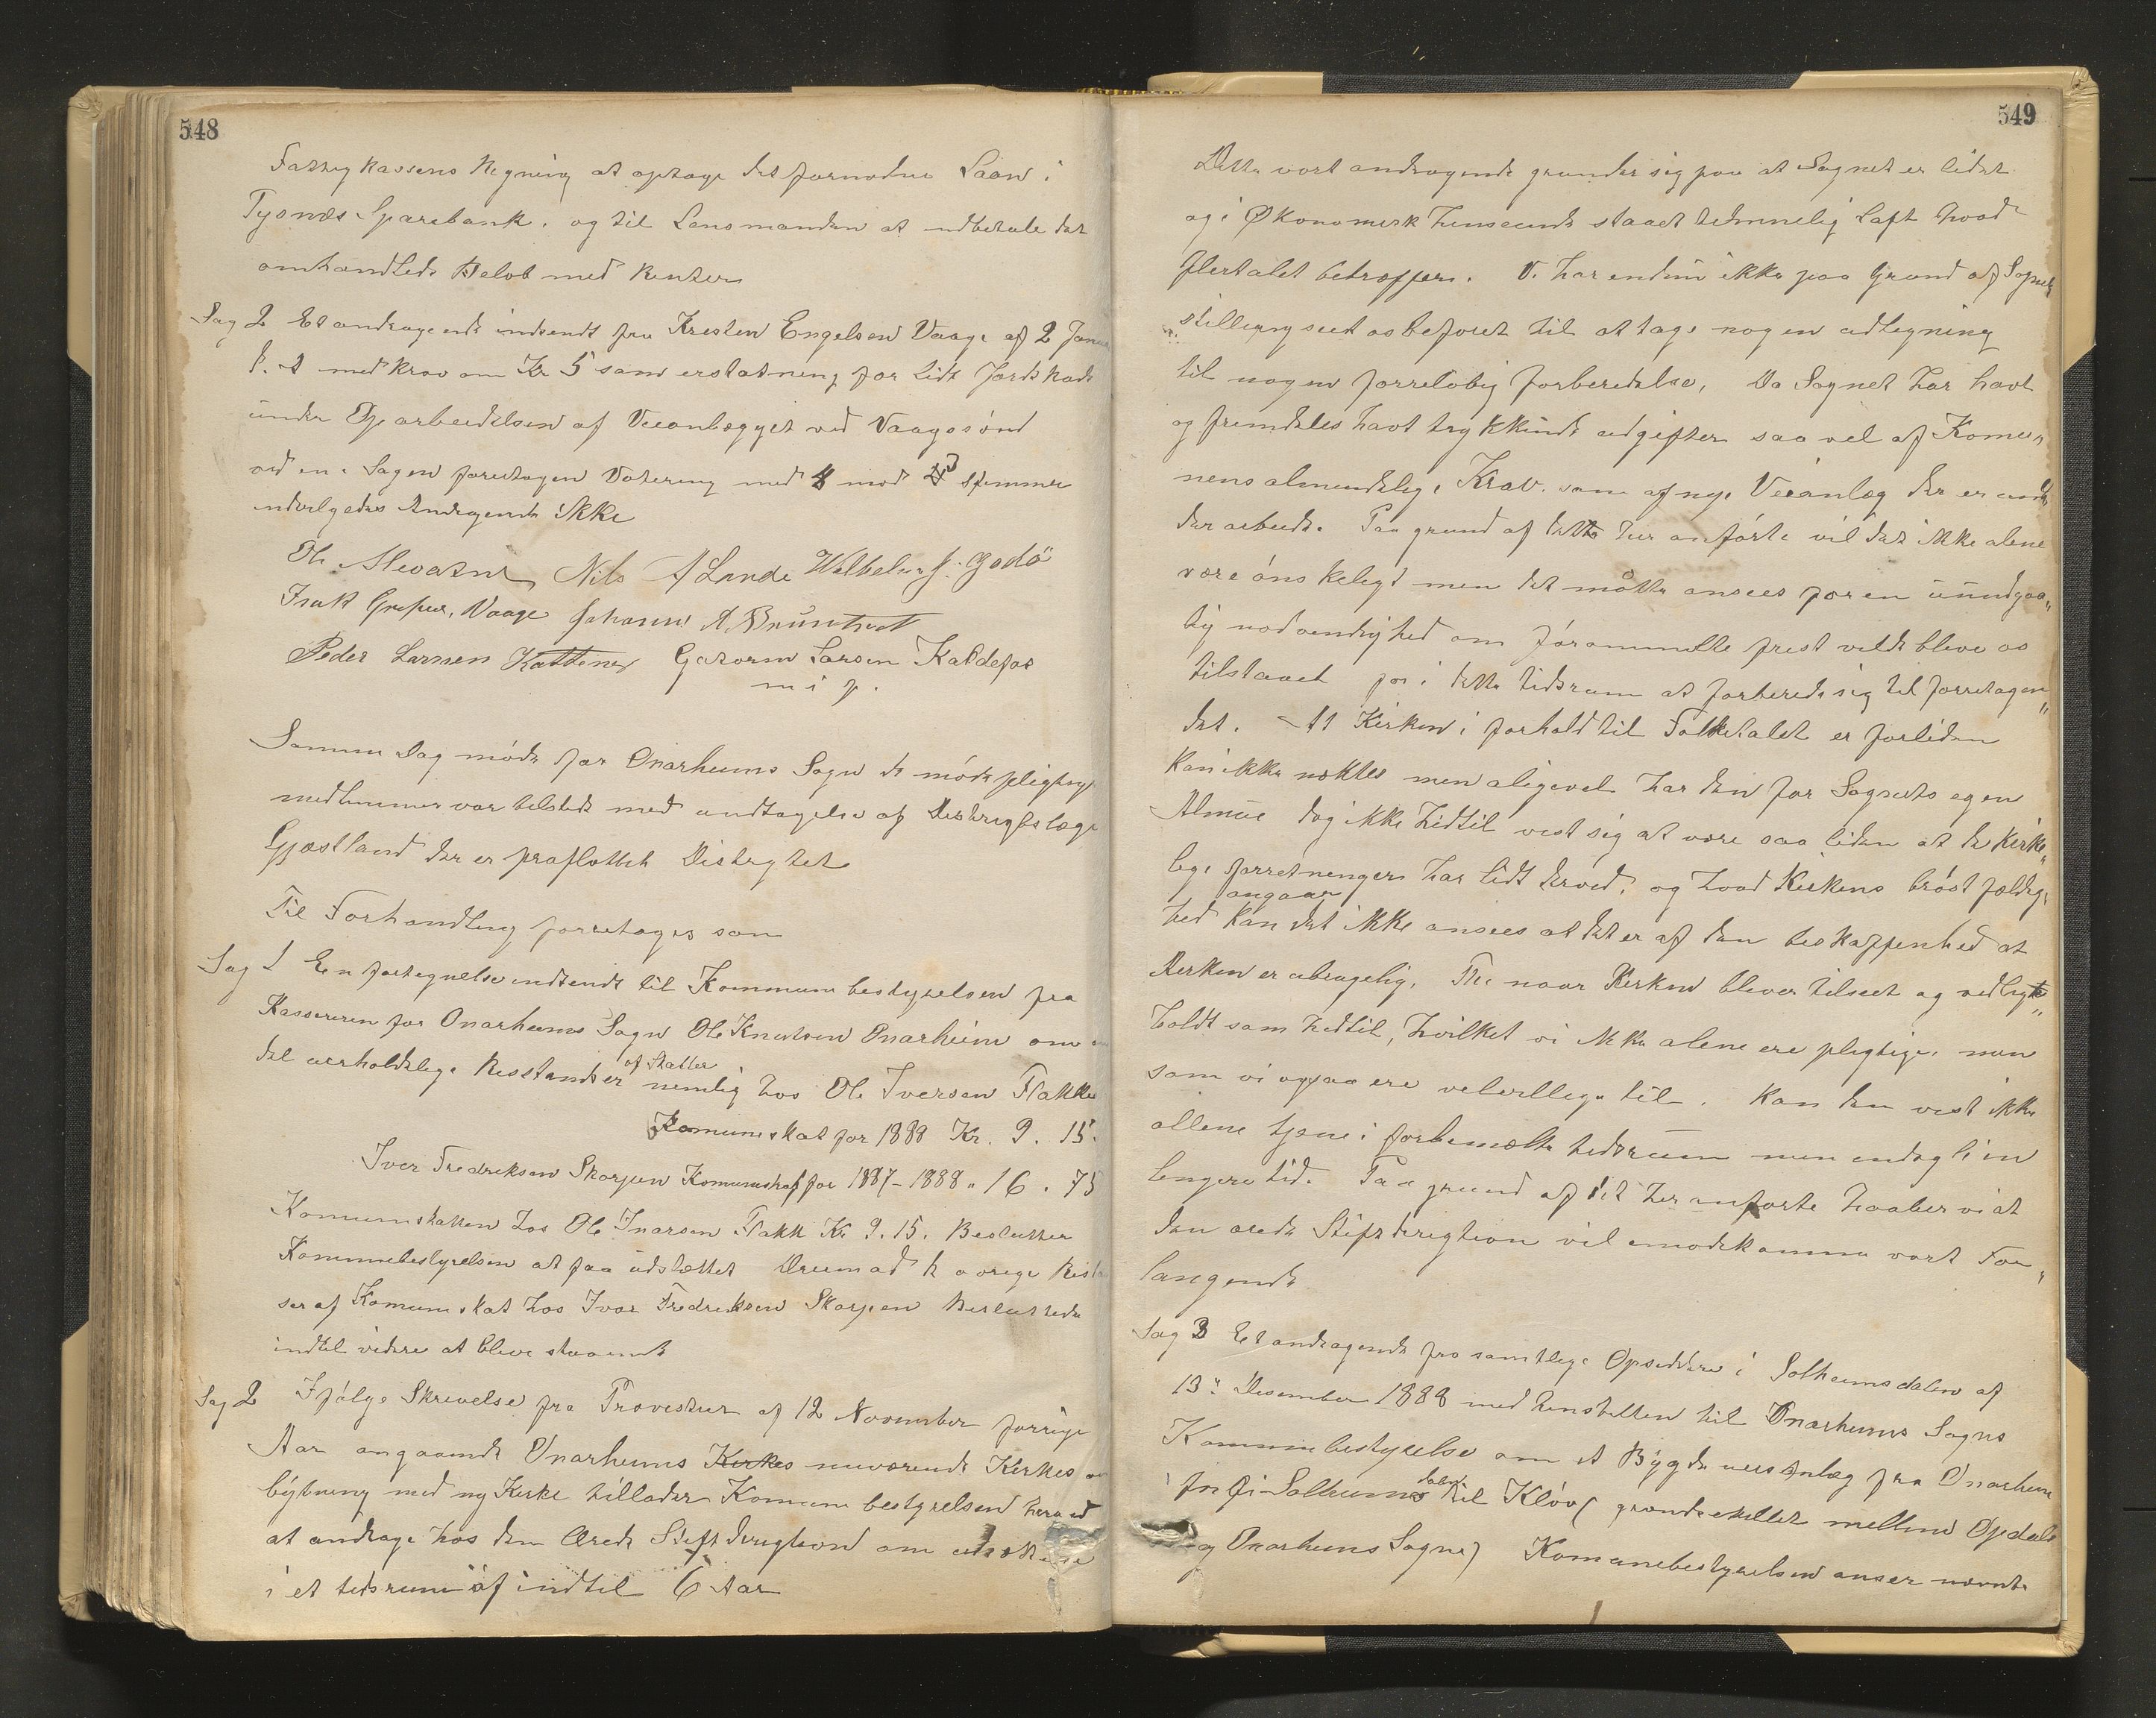 548
Fattigkassens Regning at optage det fornødne Laan i
Tysnæs Sparebank, og til Lensmanden at udbetale det
omhandlede Beløb med Renter
Sag 2 Et andragende indsendt fra Kristen Engelsen Vaage af 2 Janu
d. A med krav om Kr 5 som erstatning for lidt Jordskade
under Oparbeidelsen af Veianlægget ved Vaagsund
ved en i Sagen foretagen Votering med 4 mod 3 Stemmer
indvilgedes Andragende ikke
Nils A Lande J. Godö
Vaage Johannes A.
Peder Larsen Larsen Kaldefos
m i p.
Samme Dag møde for Onarheims Sogn de mødepligtige
medlemmer var tilstede med undtagelse af Distrigtslæge
Gjæstland der er fraflottet Distrigtet
Til Forhandling foretages som
Sag 1 En fortegnelse indsendt til Kommunebestyrelsen fra
Kassereren for Onarheims Sogn Ole Knutsen Onarheim om
del uerholdelige Restandser af Skatter nemlig hos Ole Iversen Flakke
Komuneskat for 1888 Kr. 9. 15.
Iver Fredriksen Skorpen Komuneskat for 1887-1888 " 16. 75
Komuneskatten hos Ole Ivarsen Flakk Kr 9. 15. Beslutter
Kommunebestyrelsen at faa udslættet Derimod de øvrige Rest
ser af Komuneskat hos Ivar Fredriksen Skorpen Besluttede
indtil videre at blive staaende
Sag 2 Ifølge Skrivelse fra Provsten af 12 November forrige
Aar angaaende Onarheims Kirkes nuværende Kirkes
bytning med ny Kirke tillader Komunebestyrelsen herved
at andrage hos den Ærede Stiftdirigtion om udsættelse
i et tidsrum af indtil 6 Aar
549
Dette vort andragende grunder sig paa at Sognet er lidet
og i Økonomisk Henseende staaet temmelig laft hvad
flertalet betræffer. Vi har endnu ikke paa Grund af Sognets
stilling seet os beføiet til at tage nogen udligning
til nogen forreløbig forberedelse, Da Sognet har havt
og fremdeles havt trykkende udgifter saa vel af Komu„
nens almindelige Krav som af nye Veianlæg der er und
der arbeide. Paa grund af dette her anførte vil det ikke alene
være ønskeligt men det måtte ansees for en uundgaa„
lig nødvendighed om forommelte frest vilde blive os
tilstaaet for i dette tidsrum at forberede sig til forretagen„
det. At Kirken i forhold til Folketalet er forliden
kan ikke nektes men aligevel har den for Sognets egen
Almue dog ikke hidtil vist sig at være saa liden at de Kirke„
lige forretninger har lidt derved, og hvad Kirkens brøstfældig„
hed angaar kan det ikke ansees at det er af den beskaffenhed at
Kirken er ubrugelig, Thi naar Kirken bliver tilseet og vedligt„
holdt som hidtil, hvilket vi ikke alene ere pligtige, men
som vi ogsaa ere velvillige til. Kan den vist ikke
allene tjene i forbemælte tidsrum men endog i en
lengere tid. Paa grund af det her anførte haaber vi at
den ærede Stiftdirigtion vil imødekomme vort For„
langende
Sag 3 Et andragende fra samtlige Opsiddere i Solheimsdalen af
13de Desember 1888 med henstillen til Onarheims Sogns
Kommunebestyrelse om et Bygdeveisanlæg fra Onarheim
Solheimsdalen til Kløv( grændseskillet mellem Opdals
og Onarheims Sogne) Komunebestyrelsen anser nævnte